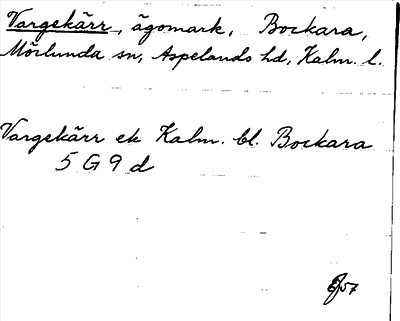 Vargekärr, ägomark, Bockara,
Mörlunda sn, Aspelands hd, Kalm. l.
Vargekärr ek Kalm. bl. Bockara
5 G 9 d
57